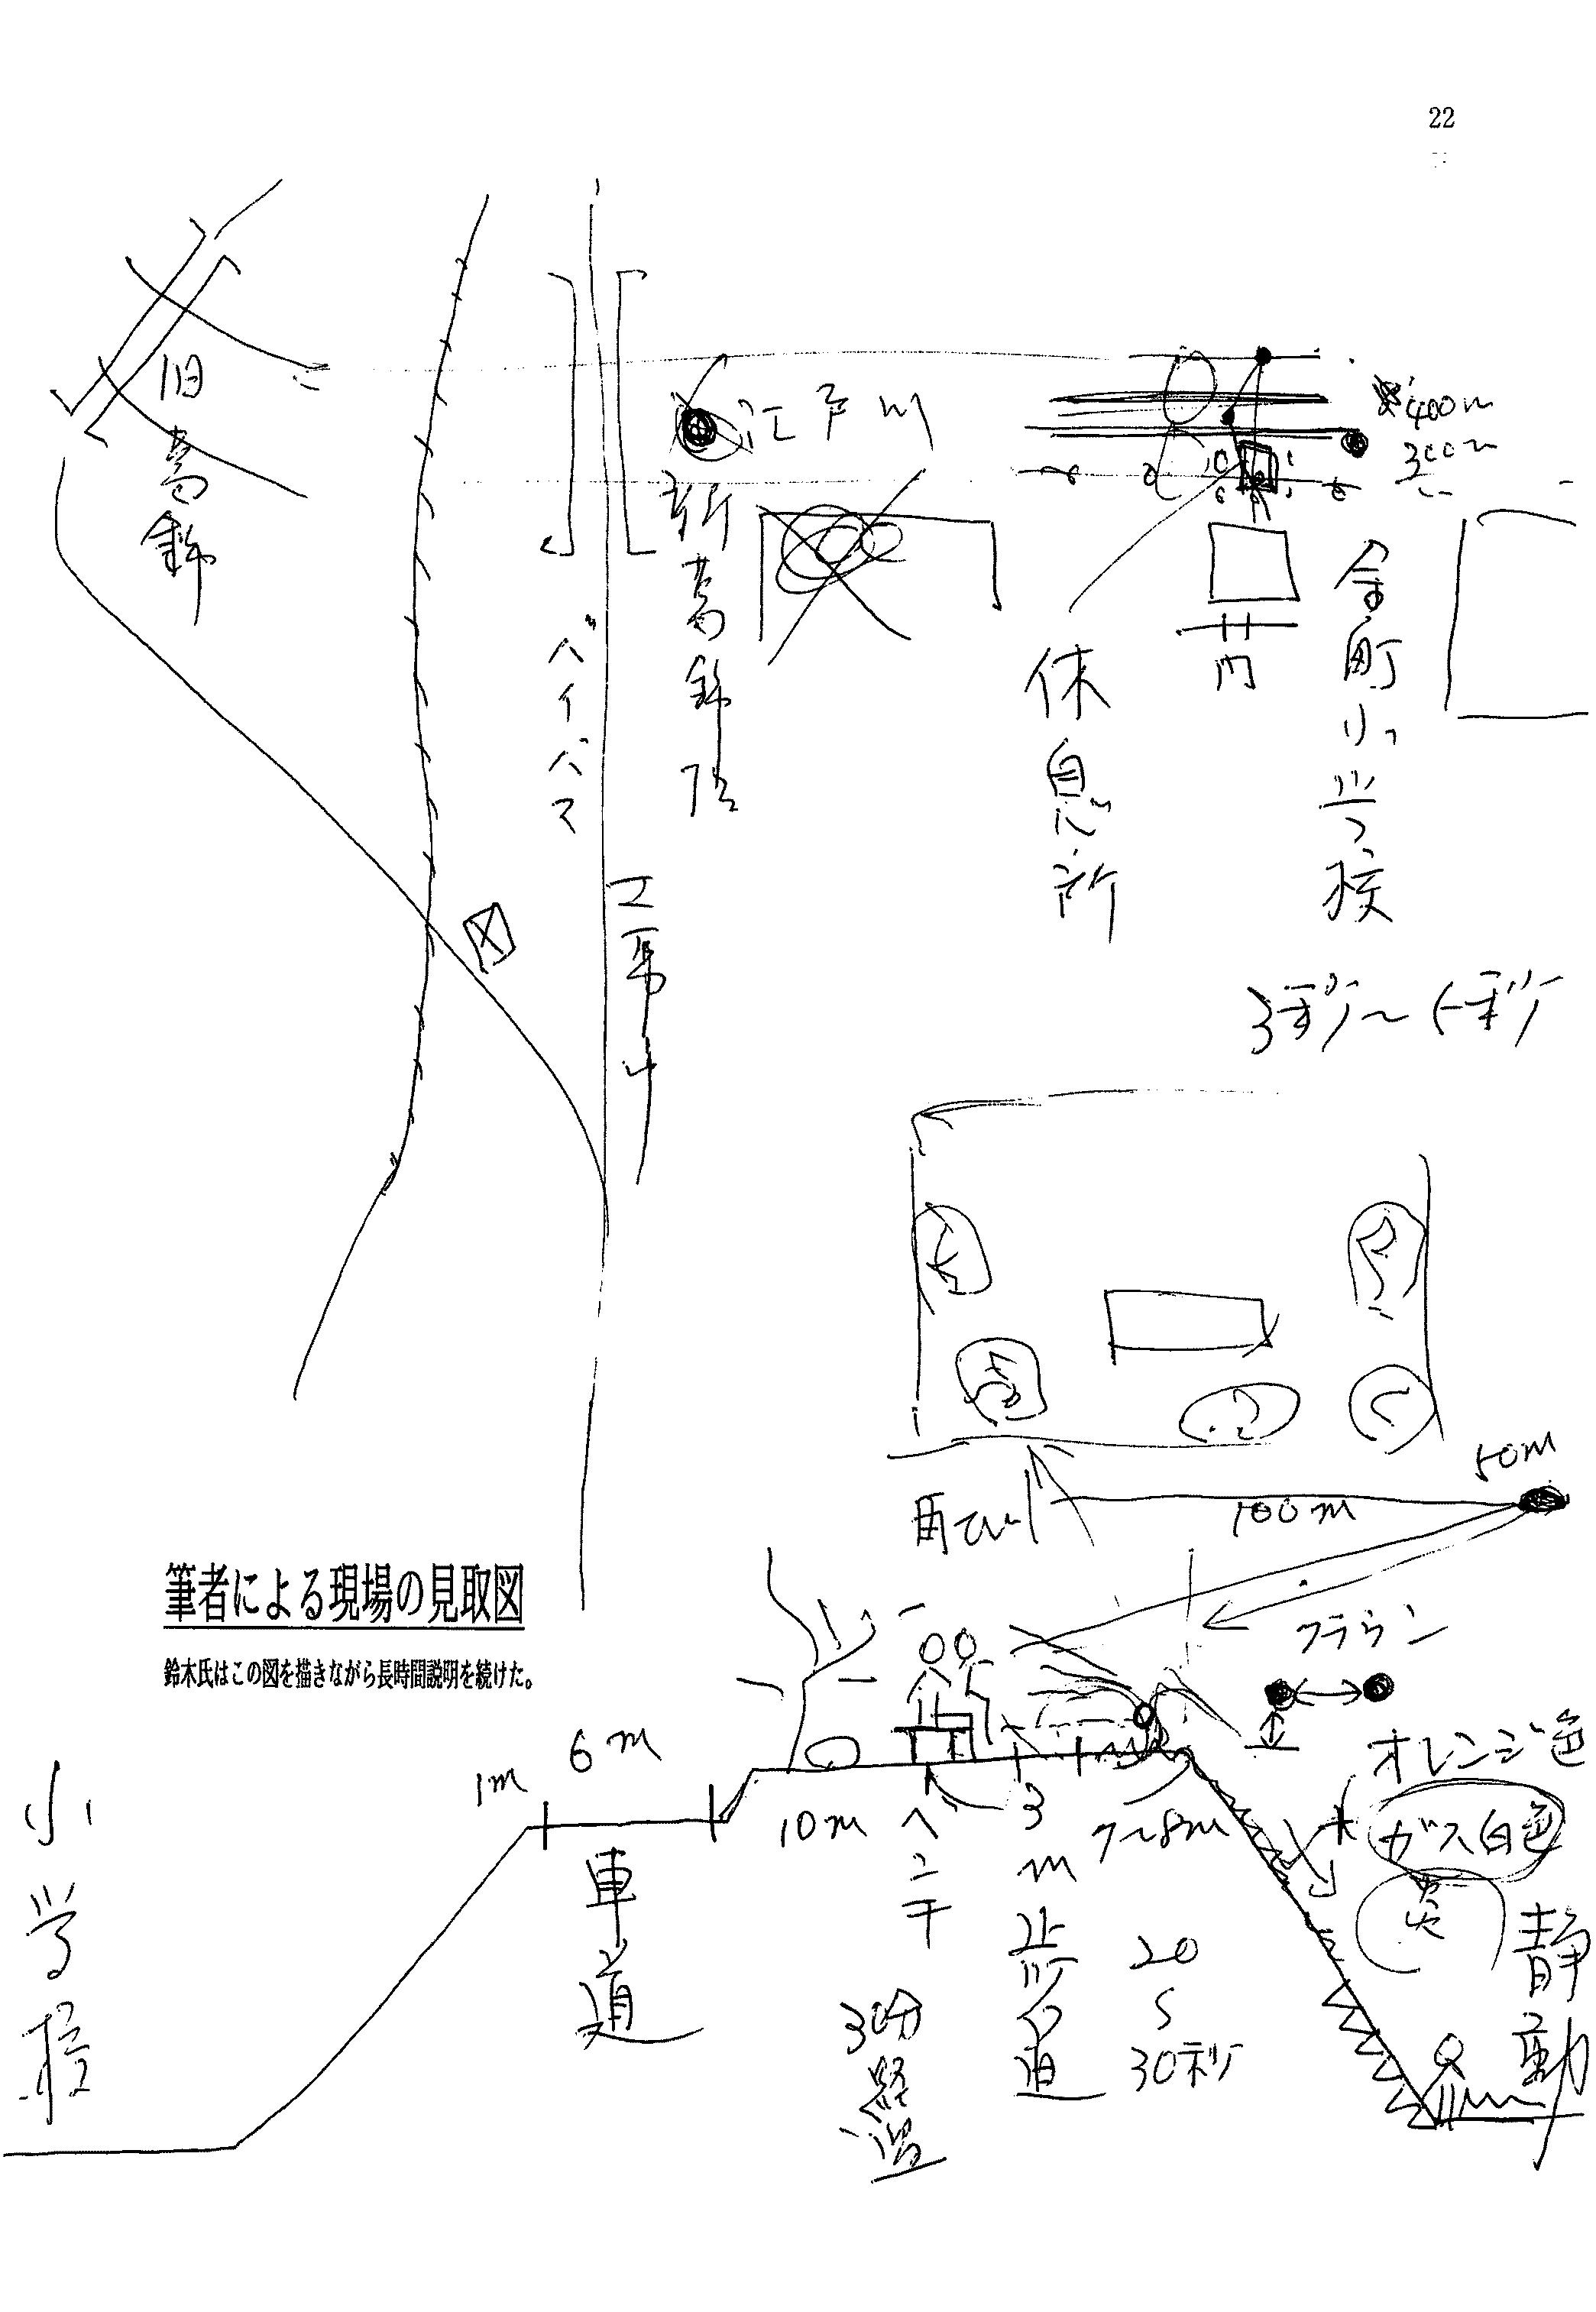 22
旧葛飾
江戸川
400m
300m
新葛飾
バイパス
工事中
休息所
門
金町小学校
3秒〜5秒
50m
100m
筆者による現場の見取図
鈴木氏はこの図を描きながら長時間説明を続けた。
フラウン
オレンジ色
ガス白色
炎
静
動
1m
6m
10m
ベンチ
3m
7〜8m
小学校
車道
遊歩道
20
30秒
30分経過